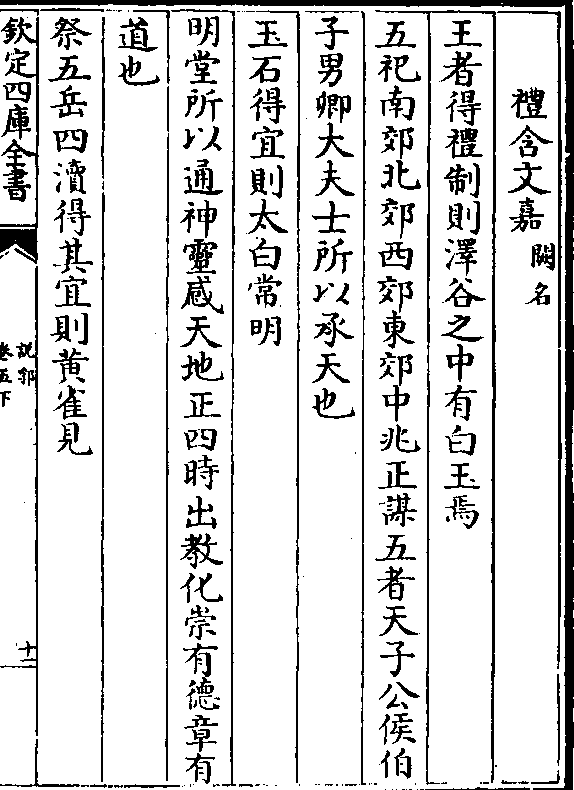 禮含文嘉闕名
王者得禮制則澤谷之中有白玉焉
五祀南郊北郊西郊東郊中兆正謀五者天子公侯伯
子男卿大夫士所以承天也
玉石得宜則太白常明
明堂所以通神靈感天地正四時出教化崇有德章有
道也
祭五岳四瀆得其宜則黄雀見
欽定四庫全書
說郛
卷五下
十二